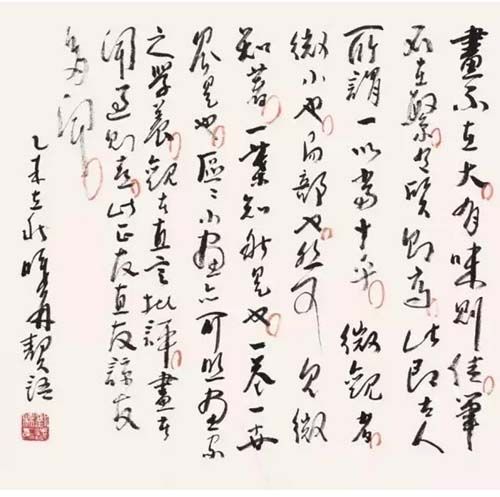 畫不在大有味則佳筆
不在繁有質則高此即古人
所謂一以當十乎微觀者
微小也局部也然可見微
知著一葉知秋是也一花一世
界是也區區小畫亦可照畫家
之學養觀者直言批評畫者
聞過則喜此正友直友諒友
多聞
乙未立秋